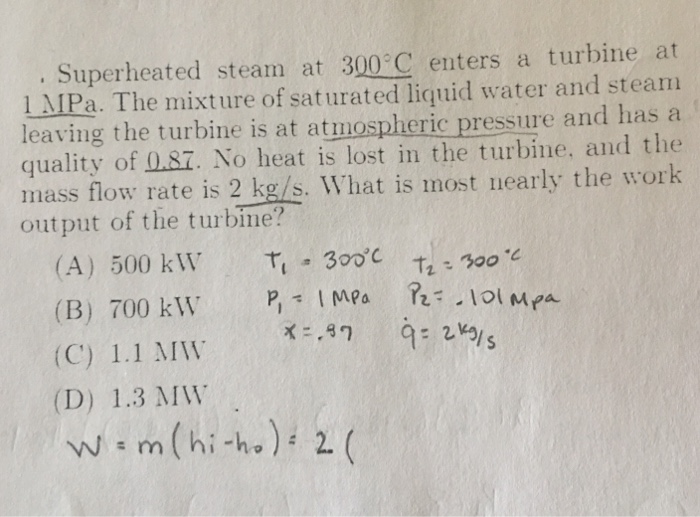 . Superheated steam at 300°C enters a turbine at
1 MPa. The mixture of saturated liquid water and steam
leaving the turbine is at atmospheric pressure and has a
quality of 0.87. No heat is lost in the turbine, and the
mass flow rate is 2 kg/s. What is most nearly the work
output of the turbine?
(A) 500 kW
(B) 700 kW
(C) 1.1 MW
(D) 1.3 MW
T₁ = 300°C T₂ = 300°C
P₁ = 1 MPa P₂ = .101 Mpa
x = .87 q̇ = 2 kg/s
W = m(hi-ho) = 2 (